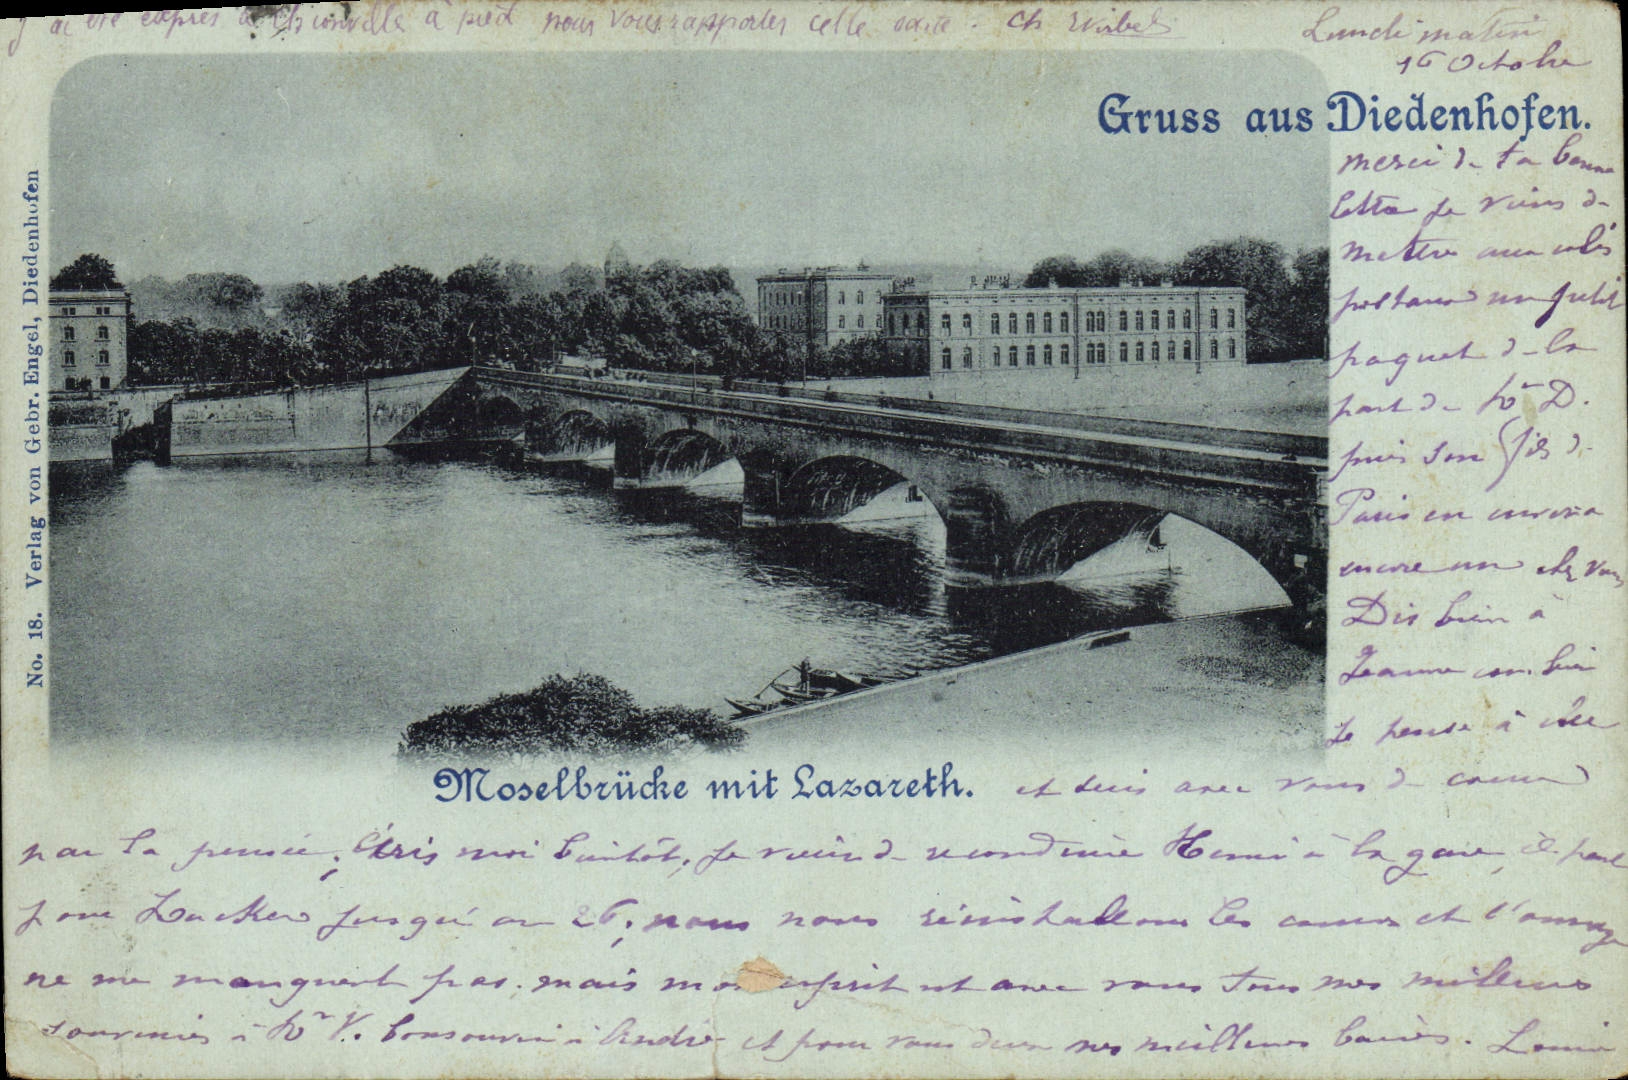 j'ai été exprès à Thionville à pied pour vous rapporter cette carte. Ch
Lundi matin
16 Octobre
Gruss aus Diedenhofen.
merci de ta bonne
lettre je viens de
mettre aux colis
postaux un petit
paquet de la
part de Mr D.
puis son fils de
Paris en enverra
encore un chez vous
Dis bien à
Jeanne combien
je pense à elle
No. 18. Verlag von Gebr. Engel, Diedenhofen
Moselbrücke mit Lazareth.
et suis avec vous de coeur
par la pensée. Écris moi bientôt, je viens de reconduire Henri à la gare, il part
pour jusqu'au 26, nous nous réinstallons les et l'ouvrage
ne me manquent pas. mais mon esprit est avec vous tous mes meilleurs
souvenirs à Mr V. bonsouvenir à André et pour vous deux nos meilleurs baisers.